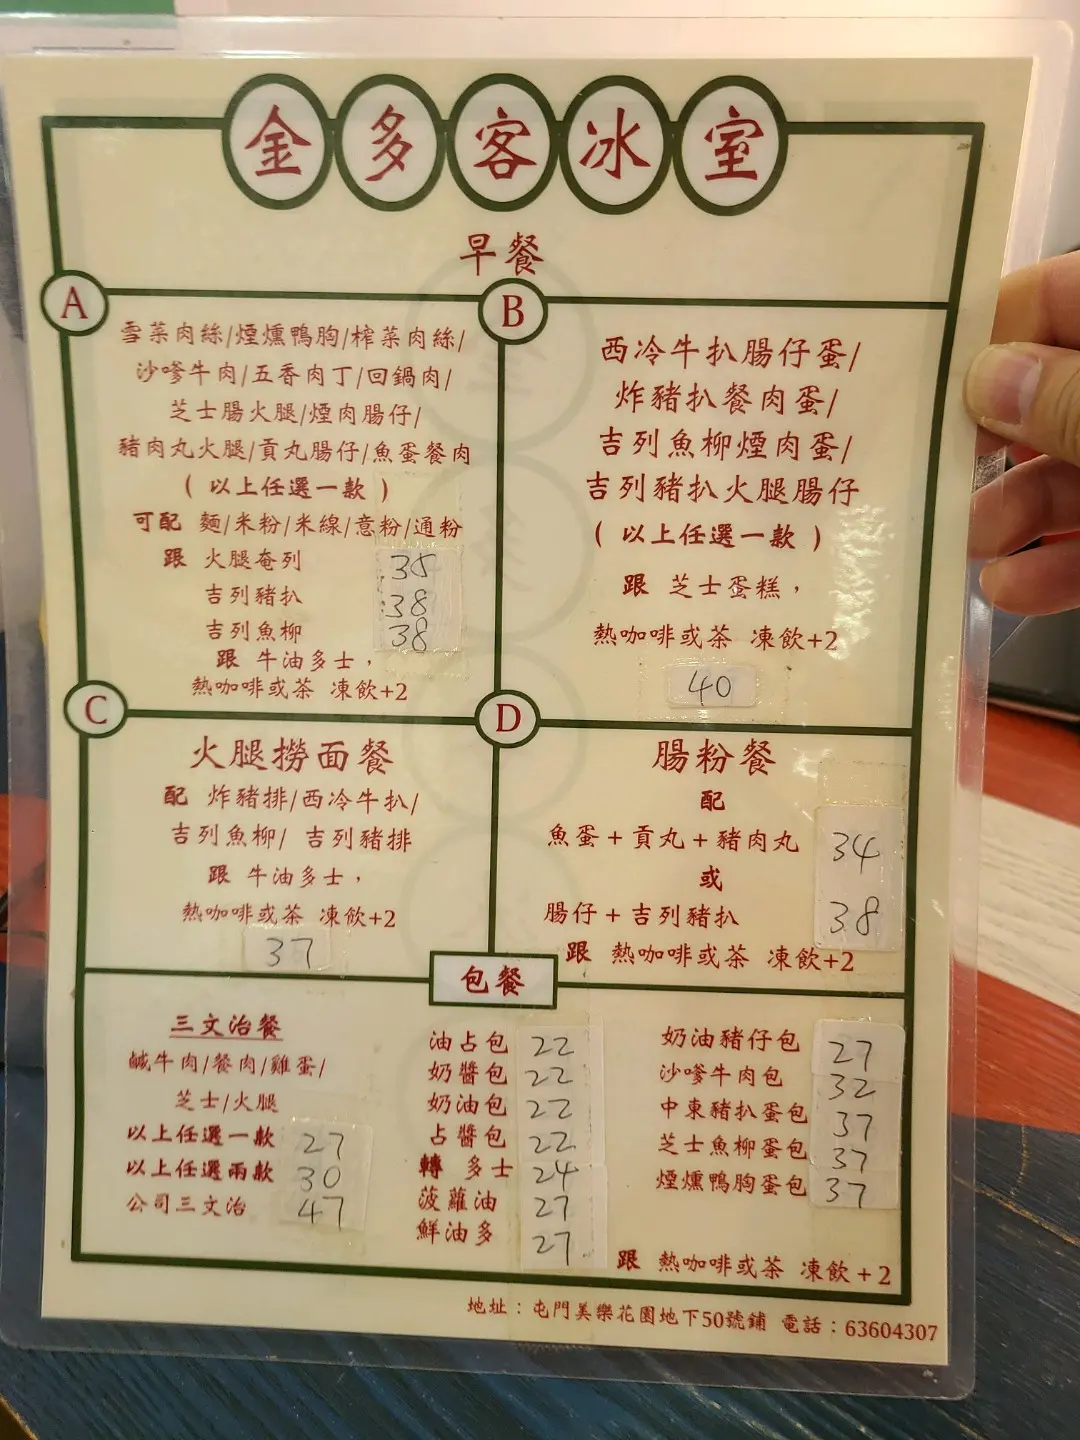 金多客冰室
早餐
A
雪菜肉絲/煙燻鴨胸/榨菜肉絲/
沙嗲牛肉/五香肉丁/回鍋肉/
芝士腸火腿/煙肉腸仔/
豬肉丸火腿/貢丸腸仔/魚蛋餐肉
( 以上任選一款 )
可配 麵/米粉/米線/意粉/通粉
跟 火腿奄列 35
吉列豬扒 38
吉列魚柳 38
跟 牛油多士,
熱咖啡或茶 凍飲+2
B
西冷牛扒腸仔蛋/
炸豬扒餐肉蛋/
吉列魚柳煙肉蛋/
吉列豬扒火腿腸仔
( 以上任選一款 )
跟 芝士蛋糕,
熱咖啡或茶 凍飲+2
40
C
火腿撈面餐
配 炸豬排/西冷牛扒/
吉列魚柳/ 吉列豬排
跟 牛油多士,
熱咖啡或茶 凍飲+2
37
D
腸粉餐
配
魚蛋+貢丸+豬肉丸 34
或
腸仔+吉列豬扒 38
跟 熱咖啡或茶 凍飲+2
包餐
三文治餐
鹹牛肉/餐肉/雞蛋/
芝士/火腿
以上任選一款 27
以上任選兩款 30
公司三文治 47
油占包 22
奶醬包 22
奶油包 22
占醬包 22
轉 多士 24
菠蘿油 27
鮮油多 27
奶油豬仔包 27
沙嗲牛肉包 32
中東豬扒蛋包 37
芝士魚柳蛋包 37
煙燻鴨胸蛋包 37
跟 熱咖啡或茶 凍飲+2
地址：屯門美樂花園地下50號鋪 電話：63604307